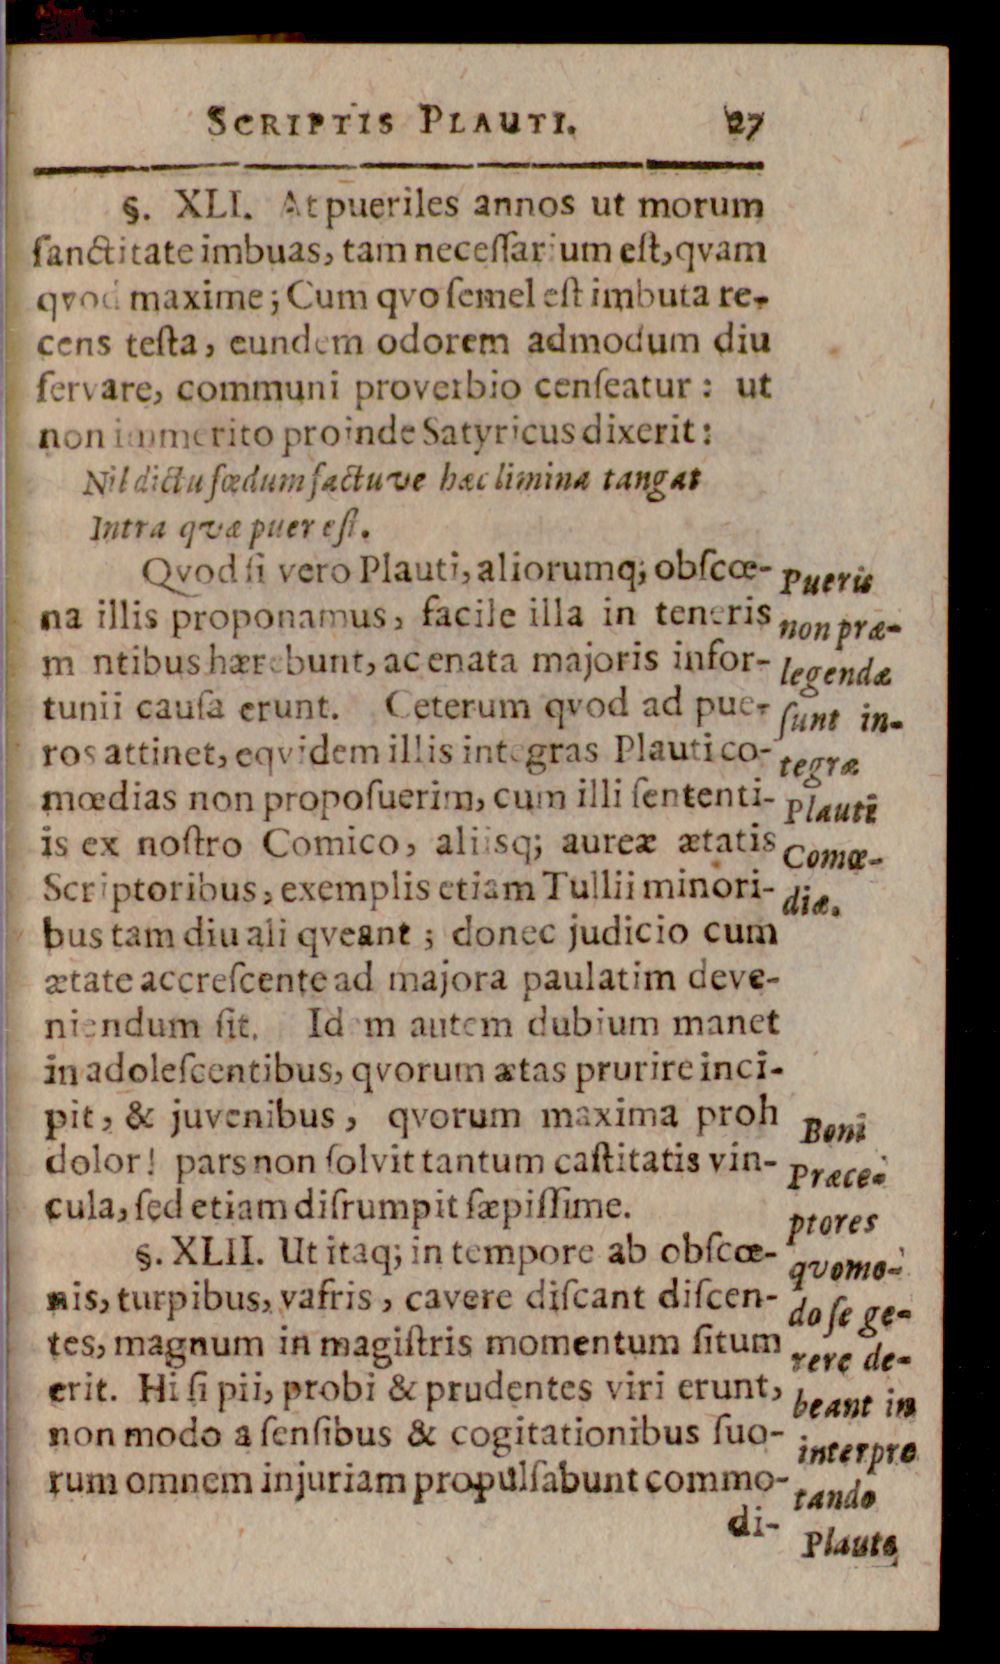 SCRIPTIS PLAUTI. 27
§. XLI. At pueriles annos ut morum
ſanctitate imbuas, tam neceſſarium eſt, qvam
qvod maxime; Cum qvo ſemel eſt imbuta re-
cens teſta, eundem odorem admodum diu
ſervare, communi proverbio cenſeatur: ut
non immerito proinde Satyricus dixerit:
Nil dictu fœdum factuve hæc limina tangat
Intra qvæ puer eſt.
Qvod ſi vero Plauti, aliorumq; obſcœ-
na illis proponamus, facile illa in teneris
mentibus hærebunt, ac enata majoris infor-
tunii cauſa erunt. Ceterum qvod ad pue-
ros attinet, eqvidem illis integras Plauti co-
mœdias non propoſuerim, cum illi ſententi-
is ex noſtro Comico, aliisq; aureæ ætatis
Scriptoribus, exemplis etiam Tullii minori-
bus tam diu ali qveant; donec judicio cum
ætate accreſcente ad majora paulatim deve-
niendum ſit. Idem autem dubium manet
in adoleſcentibus, qvorum ætas prurire inci-
pit, & juvenibus, qvorum maxima proh
dolor! pars non ſolvit tantum caſtitatis vin-
cula, ſed etiam diſrumpit ſæpiſſime.
§. XLII. Ut itaq; in tempore ab obſcœ-
nis, turpibus, vafris, cavere diſcant diſcen-
tes, magnum in magiſtris momentum ſitum
erit. Hi ſi pii, probi & prudentes viri erunt,
non modo a ſenſibus & cogitationibus ſuo-
rum omnem injuriam propulſabunt commo-
di-
Pueris
non præ-
legendæ
ſunt in-
tegræ
Plauti
Comœ-
diæ.
Boni
Præce-
ptores
quomo-
do ſe ge-
rere de-
beant in
interpre
tando
Plauto